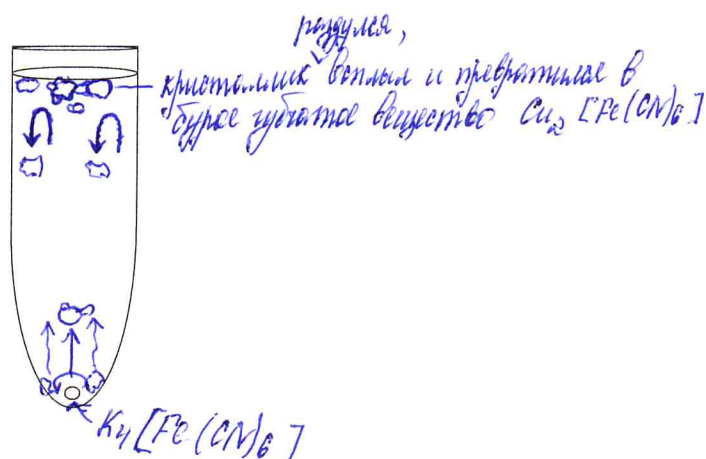 раздулся,
кристаллик всплыл и превратился в
бурое губчатое вещество Cu₂ [Fe(CN)₆]
K₄[Fe(CN)₆]